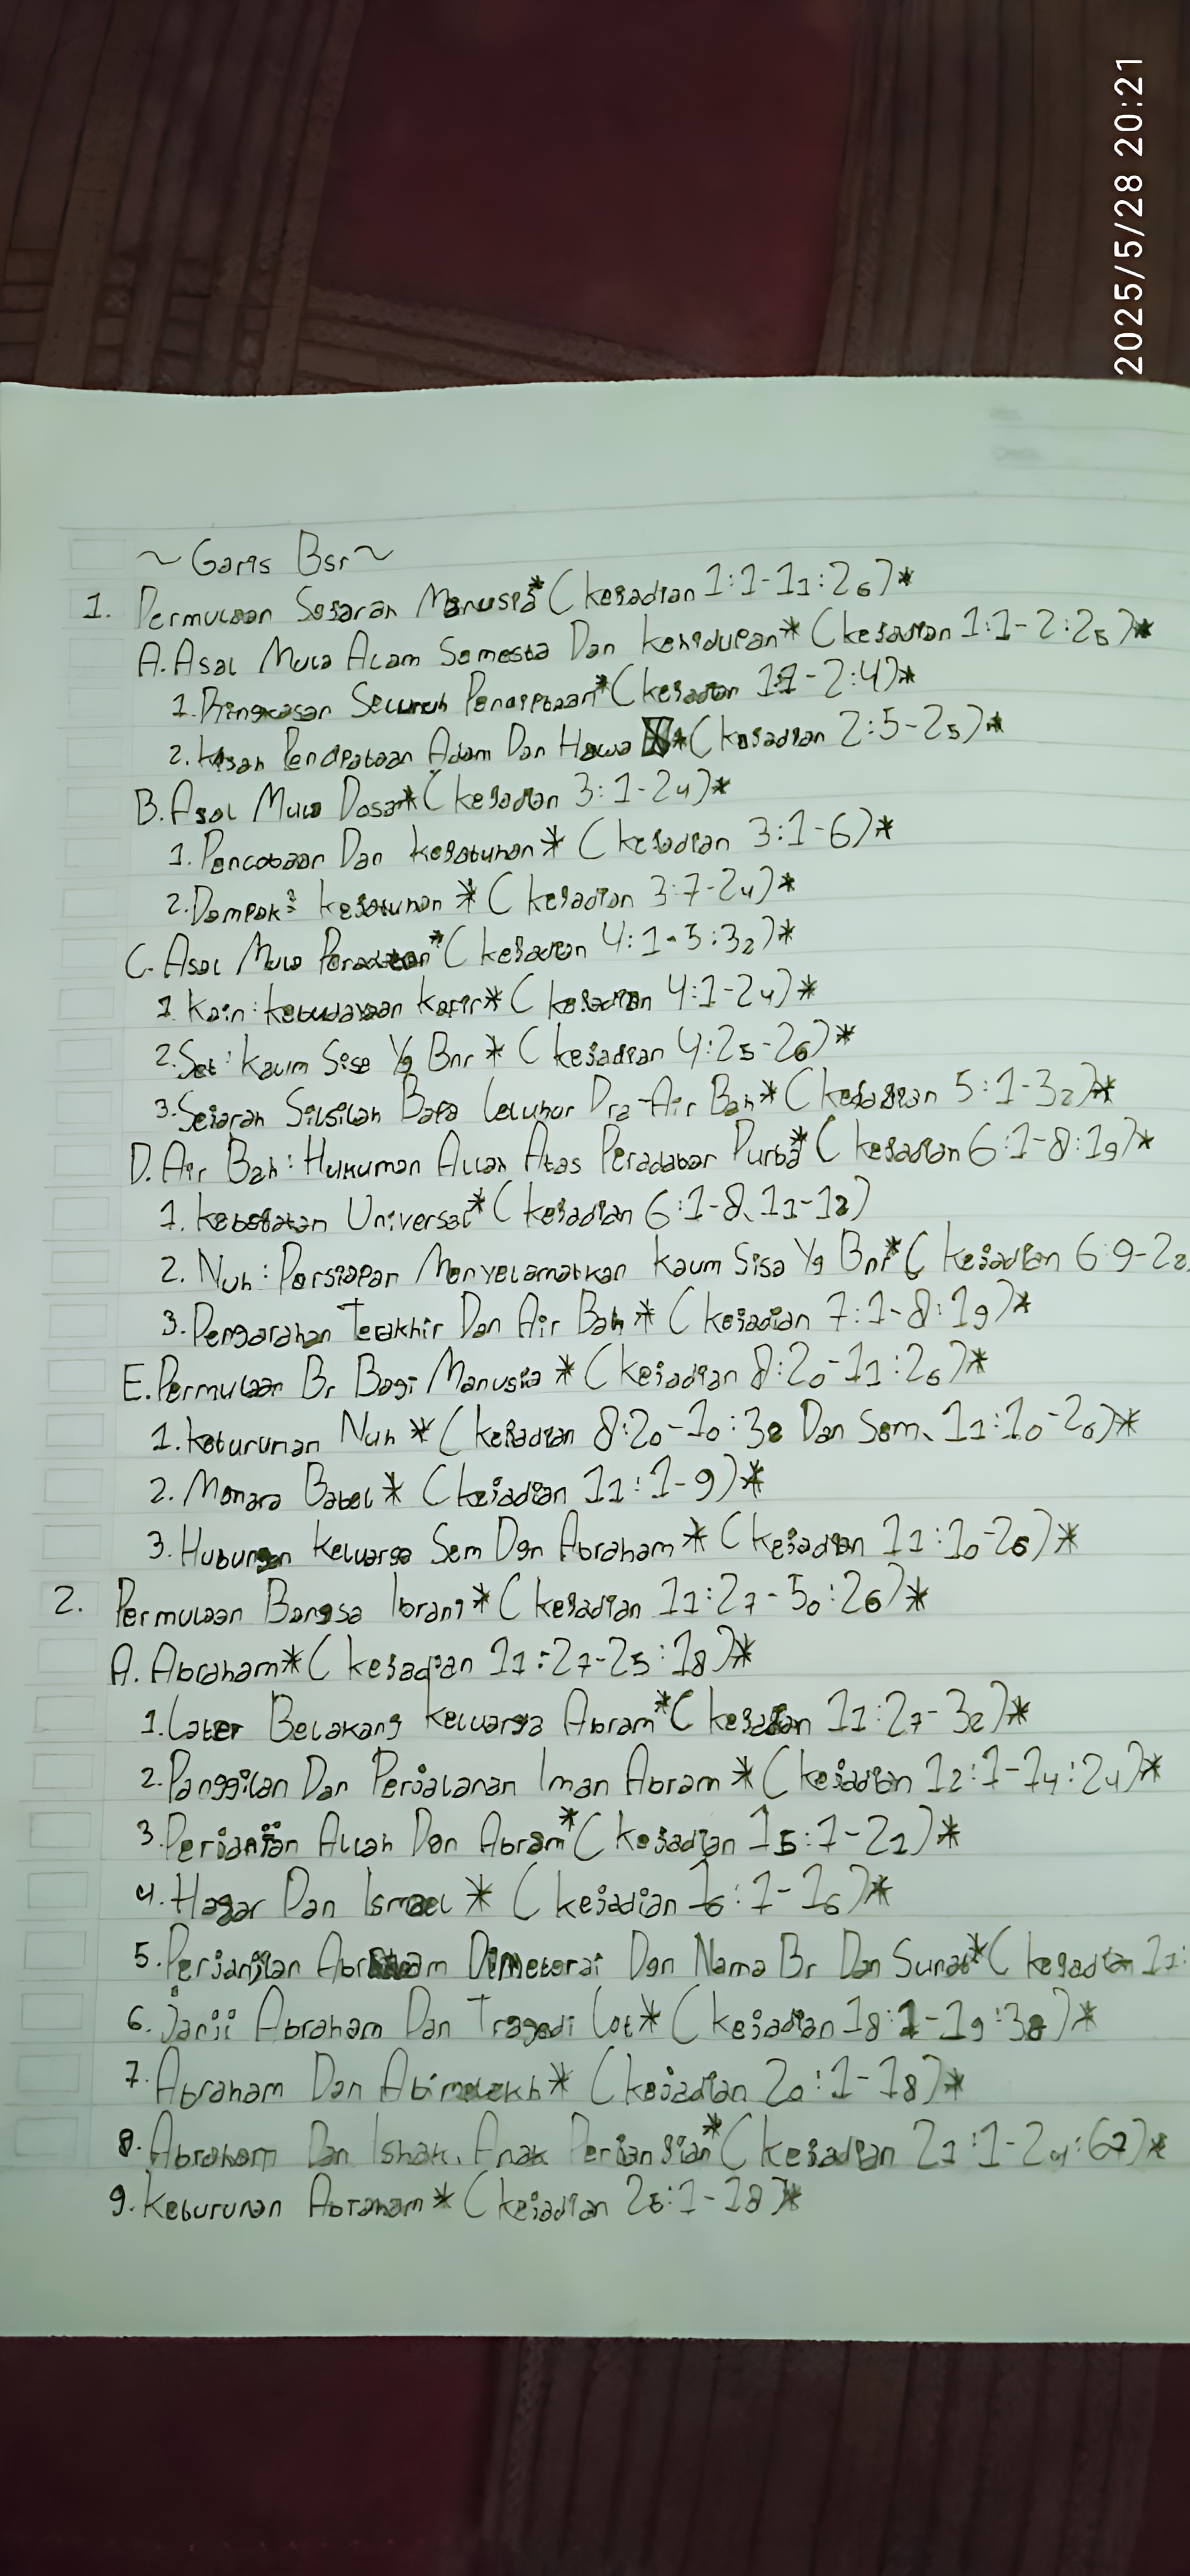 2025/5/28 20:21
~Garis Bsr~
1. Permulaan Sejarah Manusia*(kejadian 1:1-11:26)*
A. Asal Mula Alam Semesta Dan kehidupan*(kejadian 1:1-2:25)*
1. Ringkasan Seluruh Penciptaan*(kejadian 1:1-2:4)*
2. kisah Penciptaan Adam Dan Hawa *(kejadian 2:5-25)*
B. Asal Mula Dosa*(kejadian 3:1-24)*
1. Pencobaan Dan kejatuhan*(kejadian 3:1-6)*
2. Dampak² kejatuhan*(kejadian 3:7-24)*
C. Asal Mula *(kejadian 4:1-5:32)*
1. Kain: kebudayaan kafir*(kejadian 4:1-24)*
2. Set: kaum Sisa Yg Bnr*(kejadian 4:25-26)*
3. Sejarah Silsilah Bapa Leluhur Pra-Air Bah*(kejadian 5:1-32)*
D. Air Bah: Hukuman Allah Atas Peradaban Purba*(kejadian 6:1-8:19)*
1. kebejatan Universal*(kejadian 6:1-8, 11-12)
2. Nuh: Persiapan Menyelamatkan kaum Sisa Yg Bnr*(kejadian 6:9-22
3. Pengarahan Terakhir Dan Air Bah*(kejadian 7:1-8:19)*
E. Permulaan Br Bagi Manusia*(kejadian 8:20-11:26)*
1. keturunan Nuh*(kejadian 8:20-10:32 Dan Sem, 11:10-26)*
2. Menara Babel*(kejadian 11:1-9)*
3. Hubungan Keluarga Sem Dgn Abraham*(kejadian 11:10-26)*
2. Permulaan Bangsa Ibrani*(kejadian 11:27-50:26)*
A. Abraham*(kejadian 11:27-25:18)*
1. Later Belakang keluarga Abram*(kejadian 11:27-32)*
2. Panggilan Dan Perjalanan Iman Abram*(kejadian 12:1-14:24)*
3. Perjanjian Allah Dgn Abram*(kejadian 15:1-21)*
4. Hagar Dan Ismael*(kejadian 16:1-16)*
5. Perjanjian Abraham Dimeterai Dgn Nama Br Dan Sunat*(kejadian
6. Janji Abraham Dan Tragedi Lot*(kejadian 18:1-19:38)*
7. Abraham Dan Abimelekh*(kejadian 20:1-18)*
8. Abraham Dan Ishak, Anak Perjanjian*(kejadian 21:1-24:67)*
9. keturunan Abraham*(kejadian 25:1-18)*